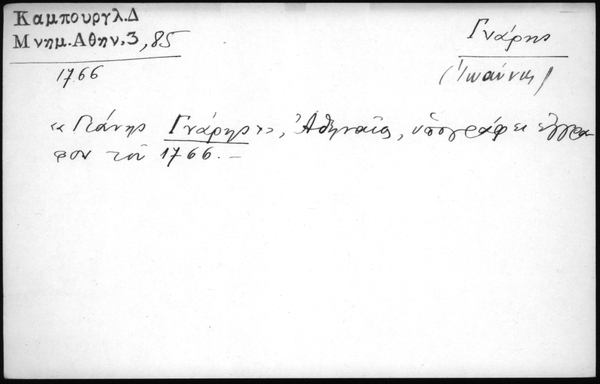 Καμπουργλ.Δ
Μνημ.Αθην.3,85
1766
Γνάρης
(Ἰωάννης)
«Γιάνης Γνάρης», Ἀθηναῖος, ὑπογράφει ἔγγρα
φον τοῦ 1766.—